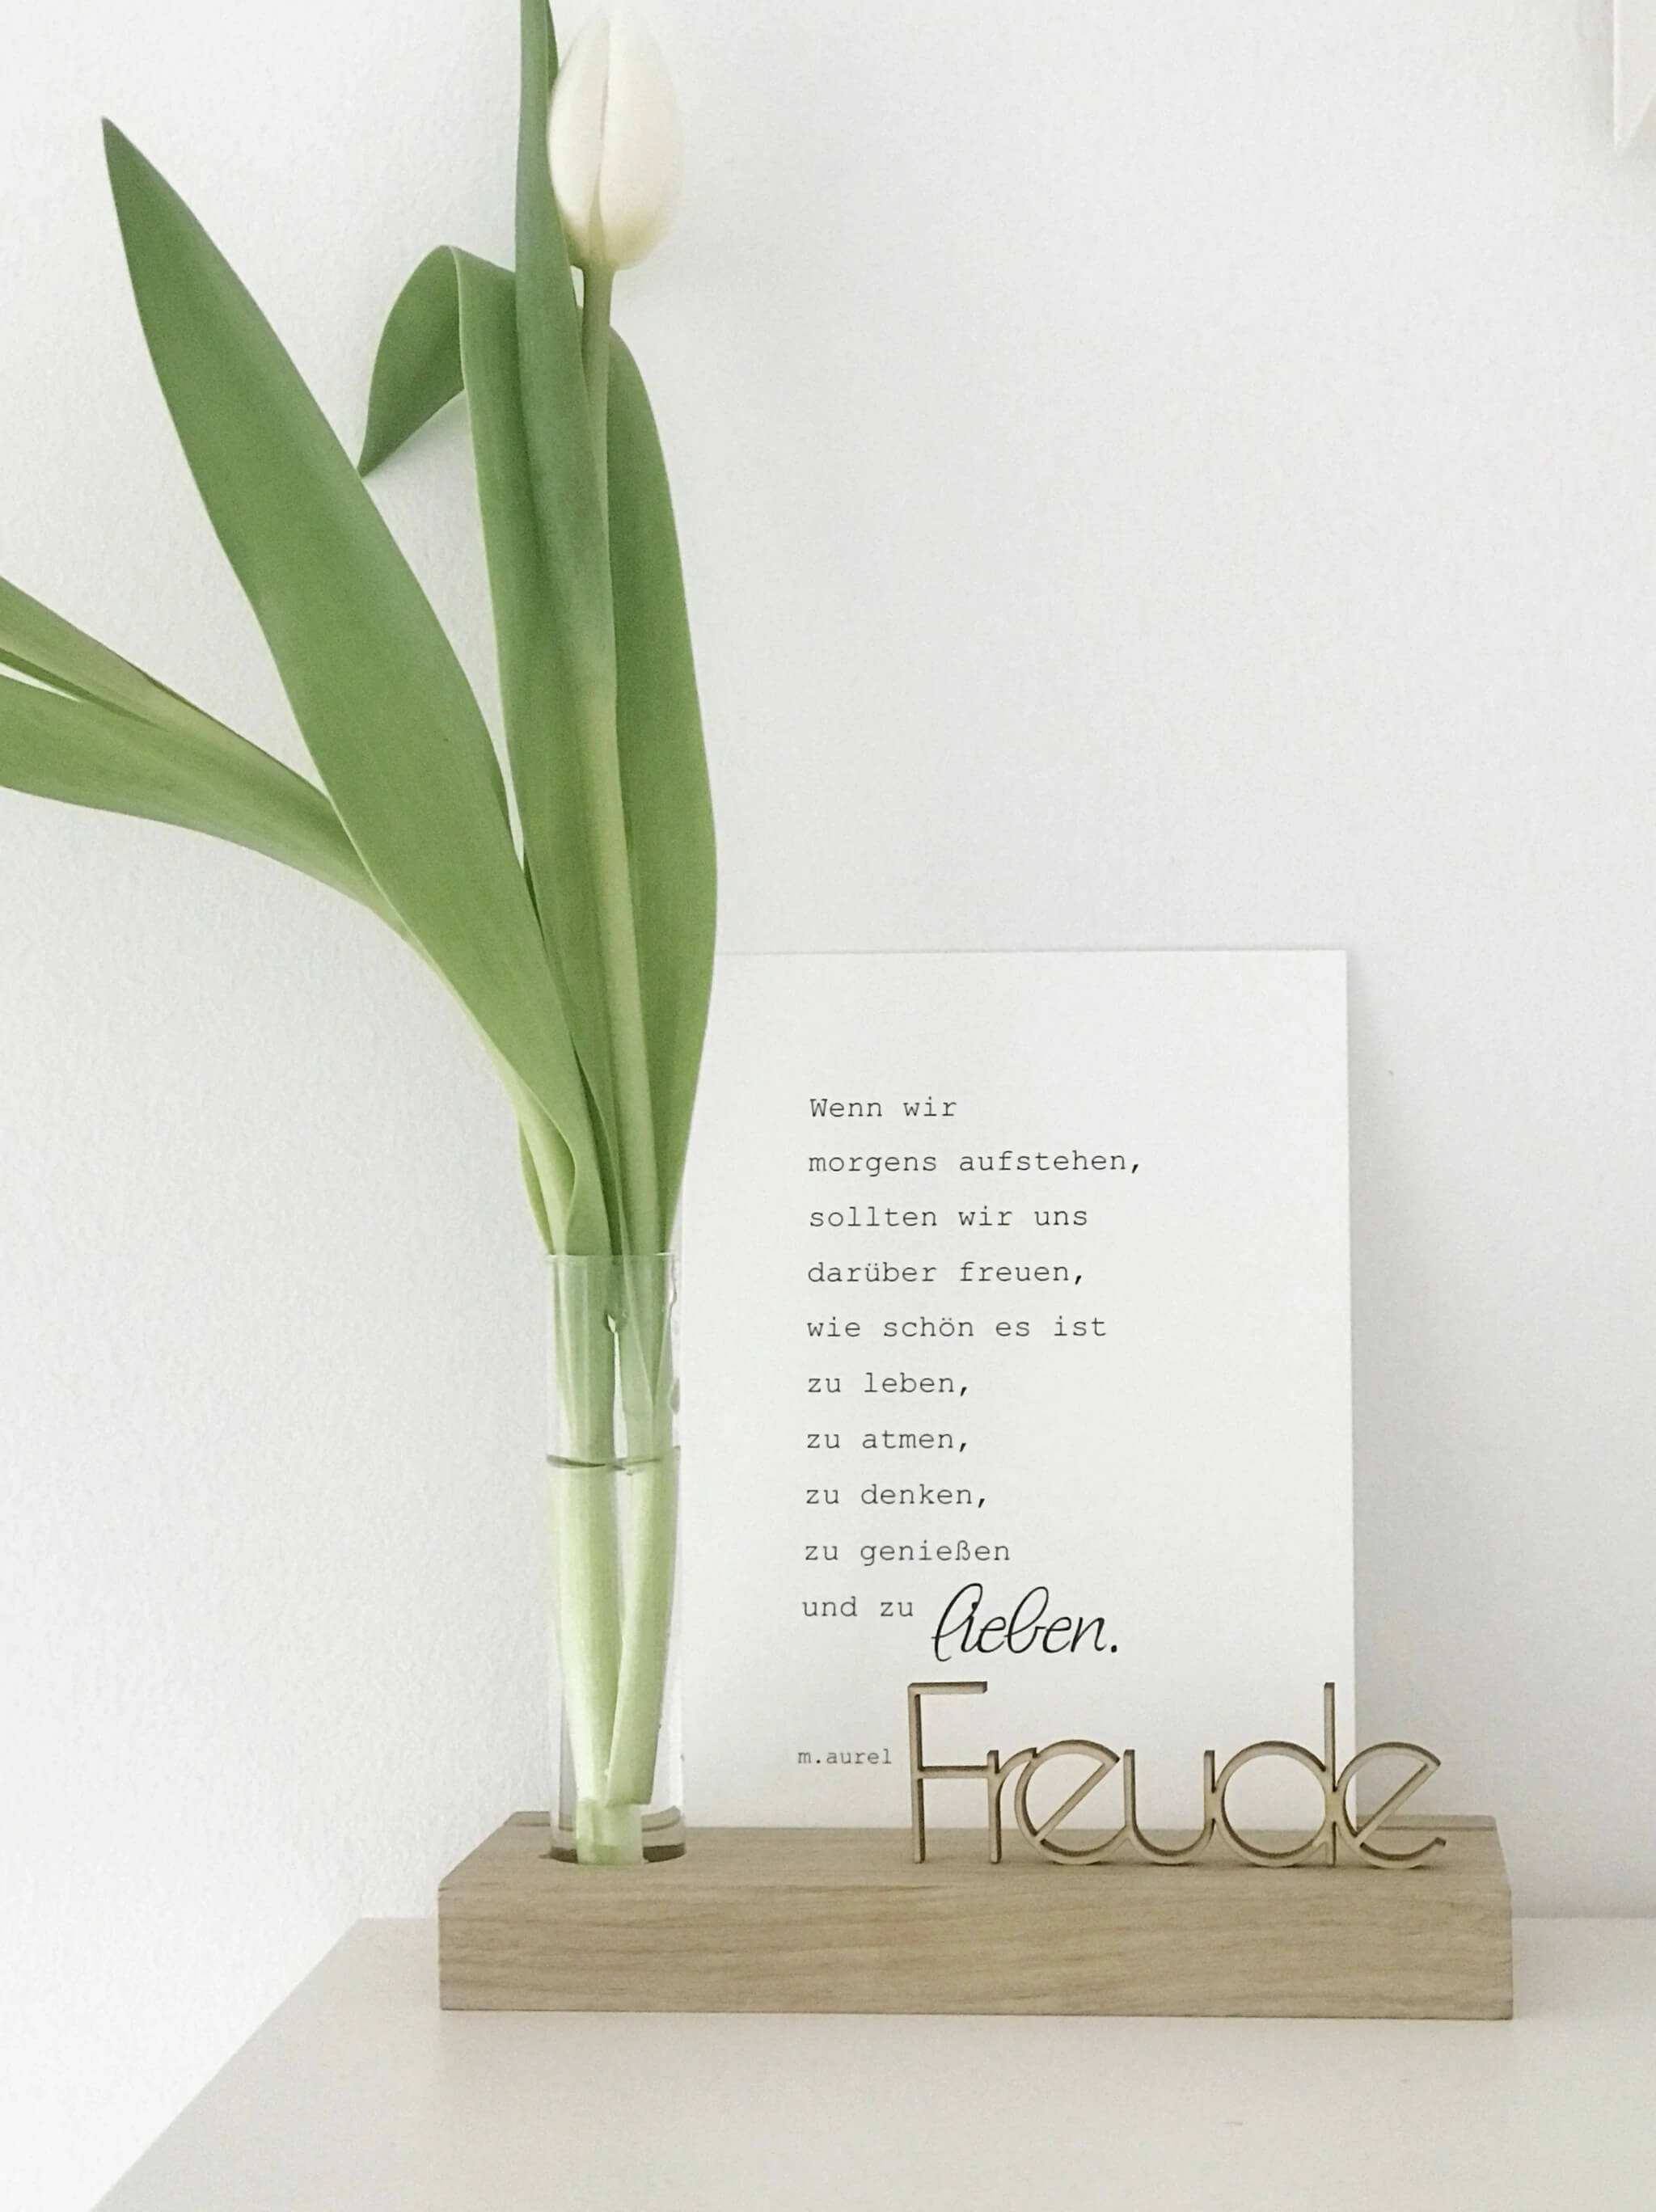 Wenn wir
morgens aufstehen,
sollten wir uns
darüber freuen,
wie schön es ist
zu leben,
zu atmen,
zu denken,
zu genießen
und zu lieben.
m.aurel
Freude